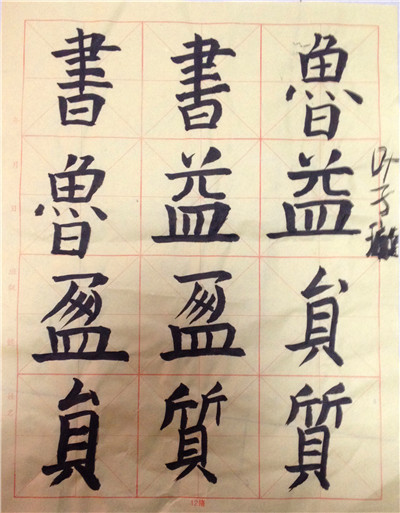 書書魯
魯益益
盈盈貟
貟質質
叶子